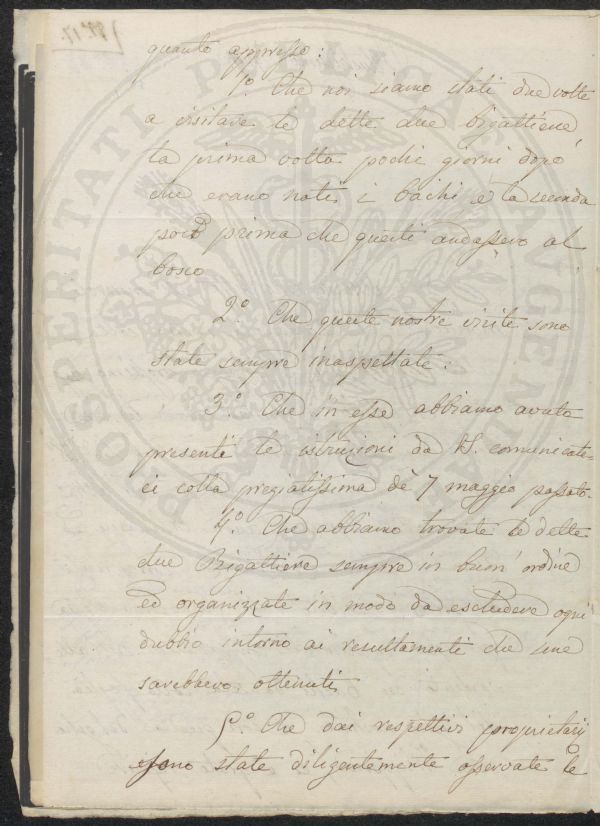 quanto appresso:
1º. Che noi siamo stati due volte
a visitare le dette due bigattiere
la prima volta pochi giorni dopo
che erano nati i bachi e la seconda
poco prima che questi andassero al
bosco
2º. Che queste nostre visite sono
state sempre inaspettate:
3º. Che in esse abbiamo avute
presenti le istruzioni da comunicate=
ci colla pregiatissima de 7 maggio passato.
4º. Che abbiamo trovate le dette
due Bigattiere sempre in buon' ordine
ed organizzate in modo da escludere ogni
dubbio intorno ai resultamenti che
sarebbero ottenuti
5º. Che dai respettivi proprietarj
sono state diligentemente osservate le
PROSPERITATI PUBLICAE AUGENDAE
Nº. 17.